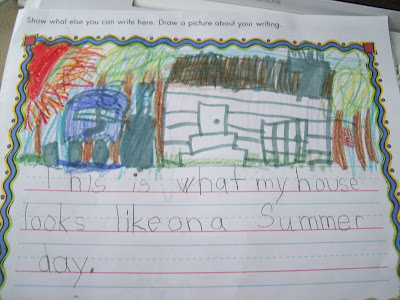 Show what else you can write here. Draw a picture about your writing.
This is what my house
looks like on a Summer
day.